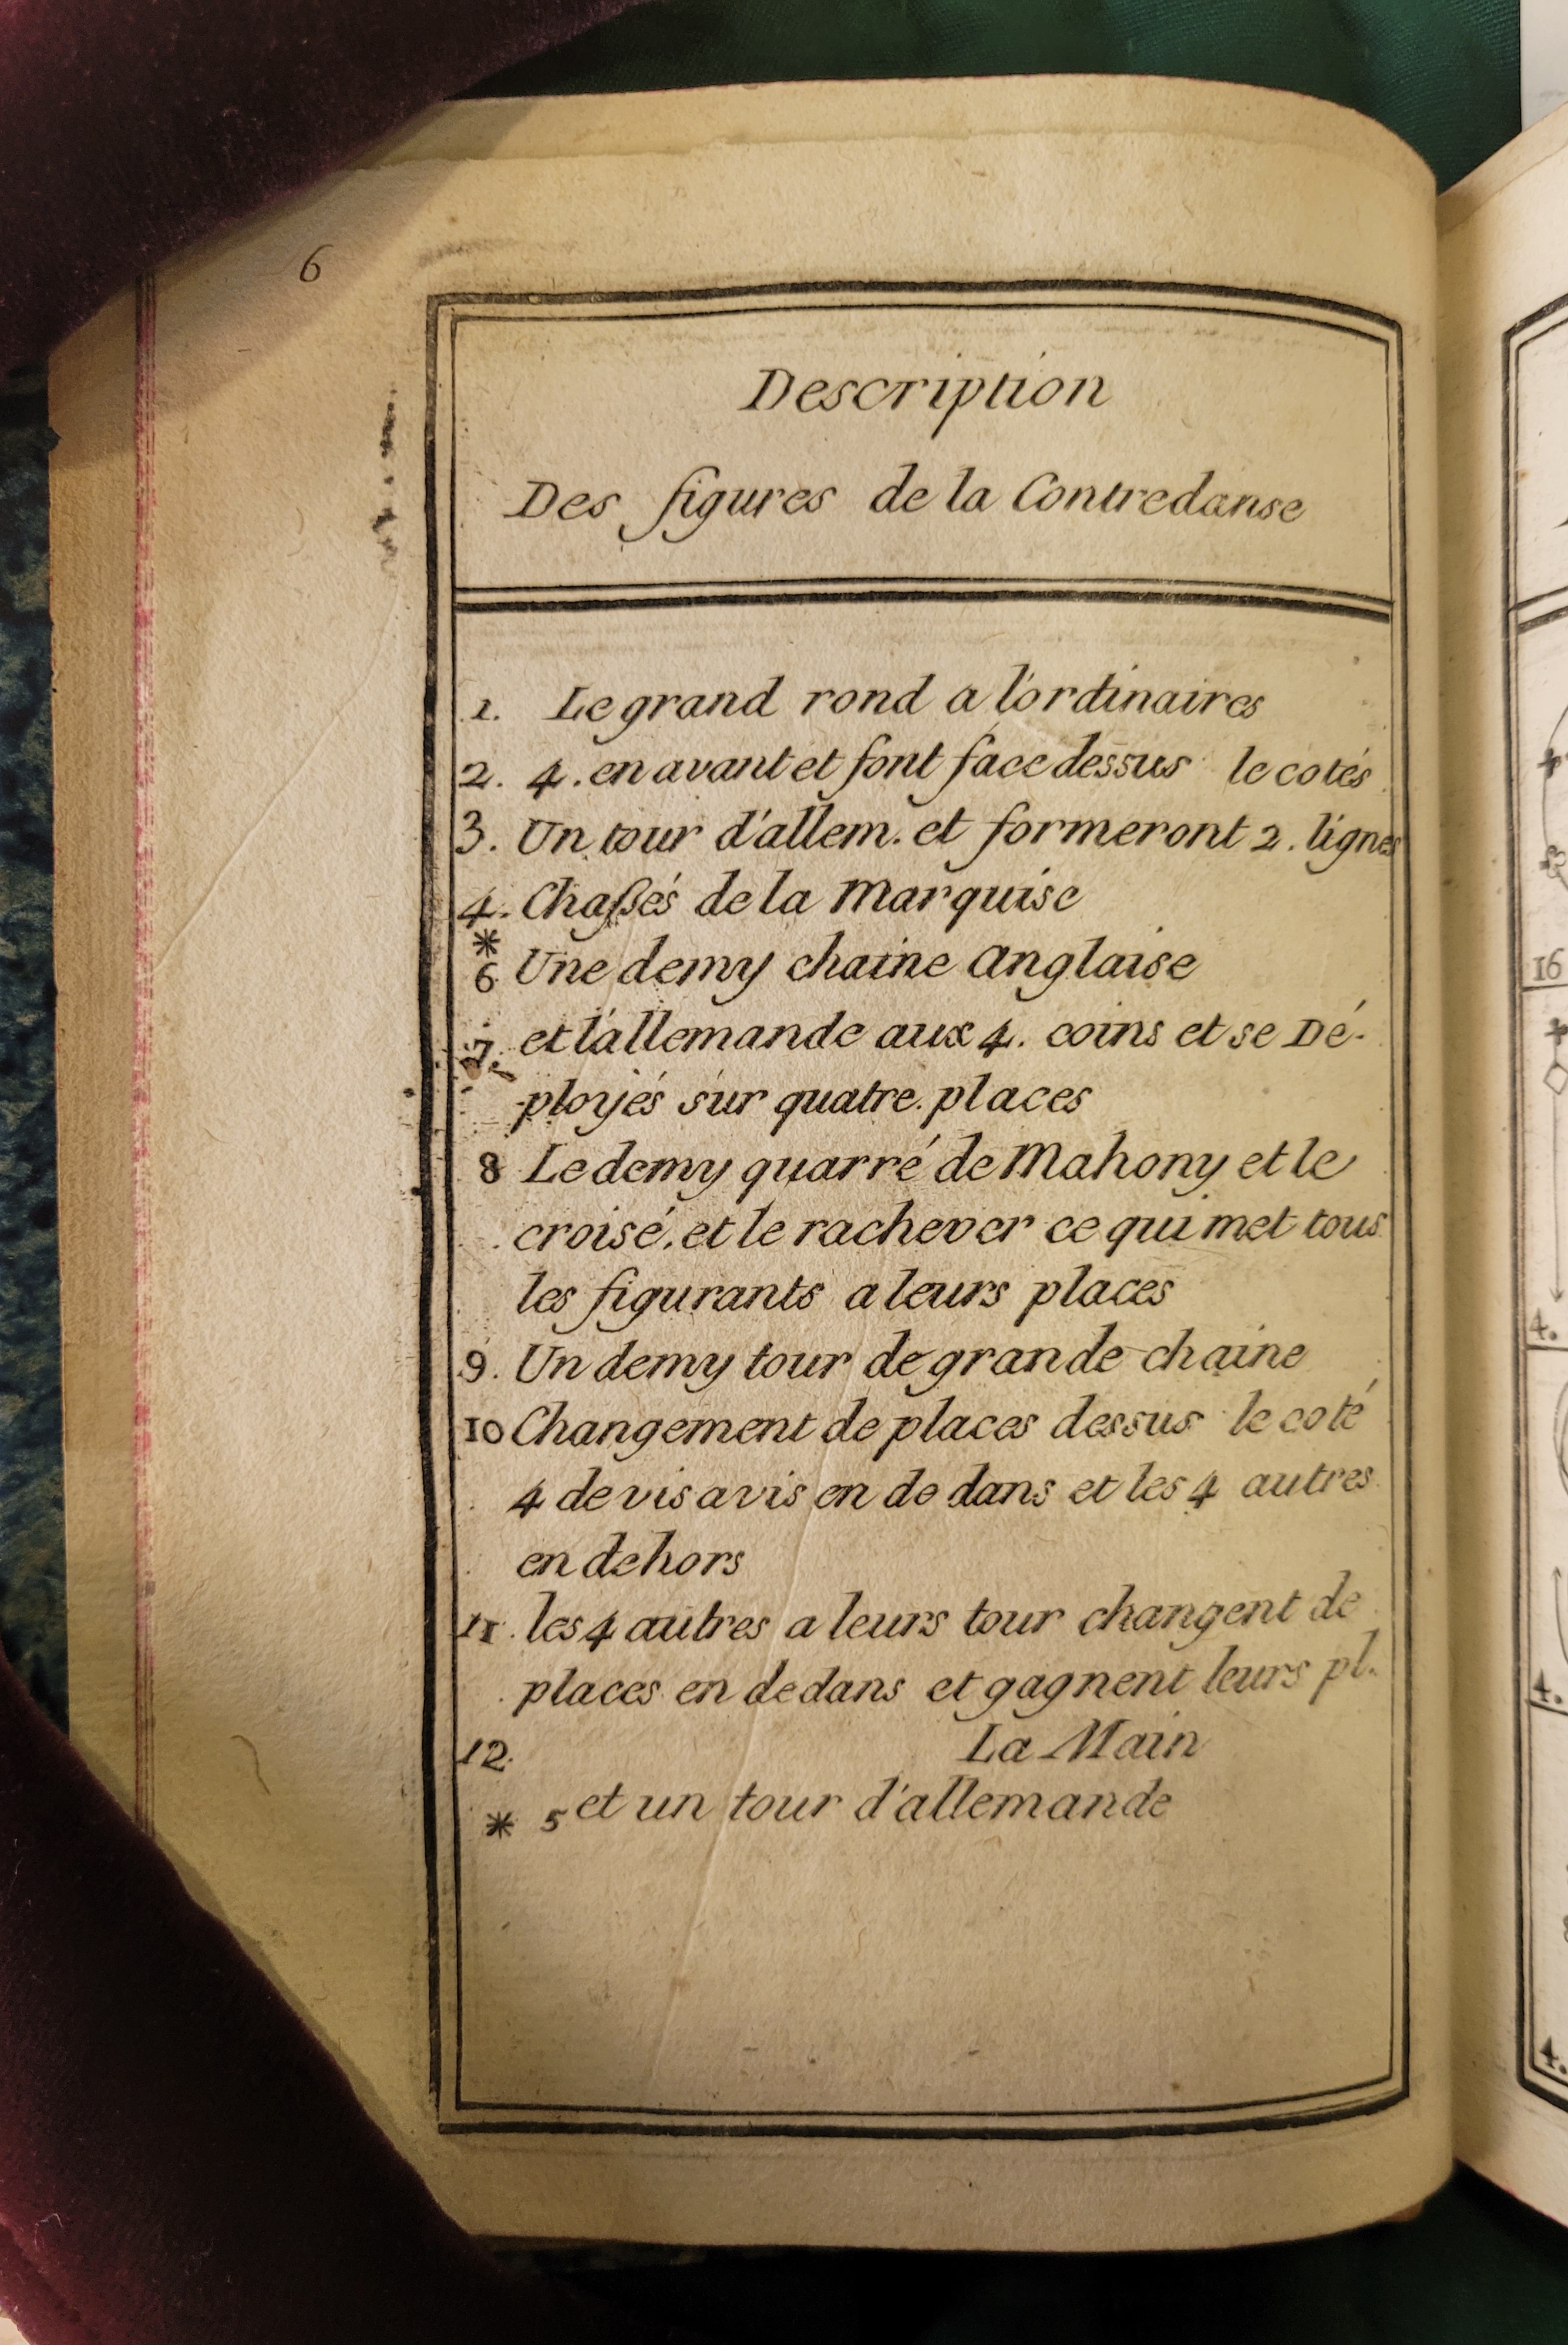 6
Description
Des figures de la Contredanse
1. Le grand rond a l'ordinaires
2. 4. en avant et font face dessus le cotés
3. Un tour d'allem. et formeront 2. lignes
4. Chaßés de la Marquise
*
6 Une demy chaine Anglaise
7. et l'allemande aux 4. coins et se Dé-
-ployés sur quatre places
8 Le demy quarré de Mahony et le
croisé, et le rachever ce qui met tous
les figurants a leurs places
9. Un demy tour de grande chaine
10 Changement de places dessus le coté
4 de vis a vis en de dans et les 4 autres
en dehors
11. les 4 autres a leurs tour changent de
places en dedans et gagnent leurs pl.
12. La Main
* 5 et un tour d'allemande
16
4.
4.
4.